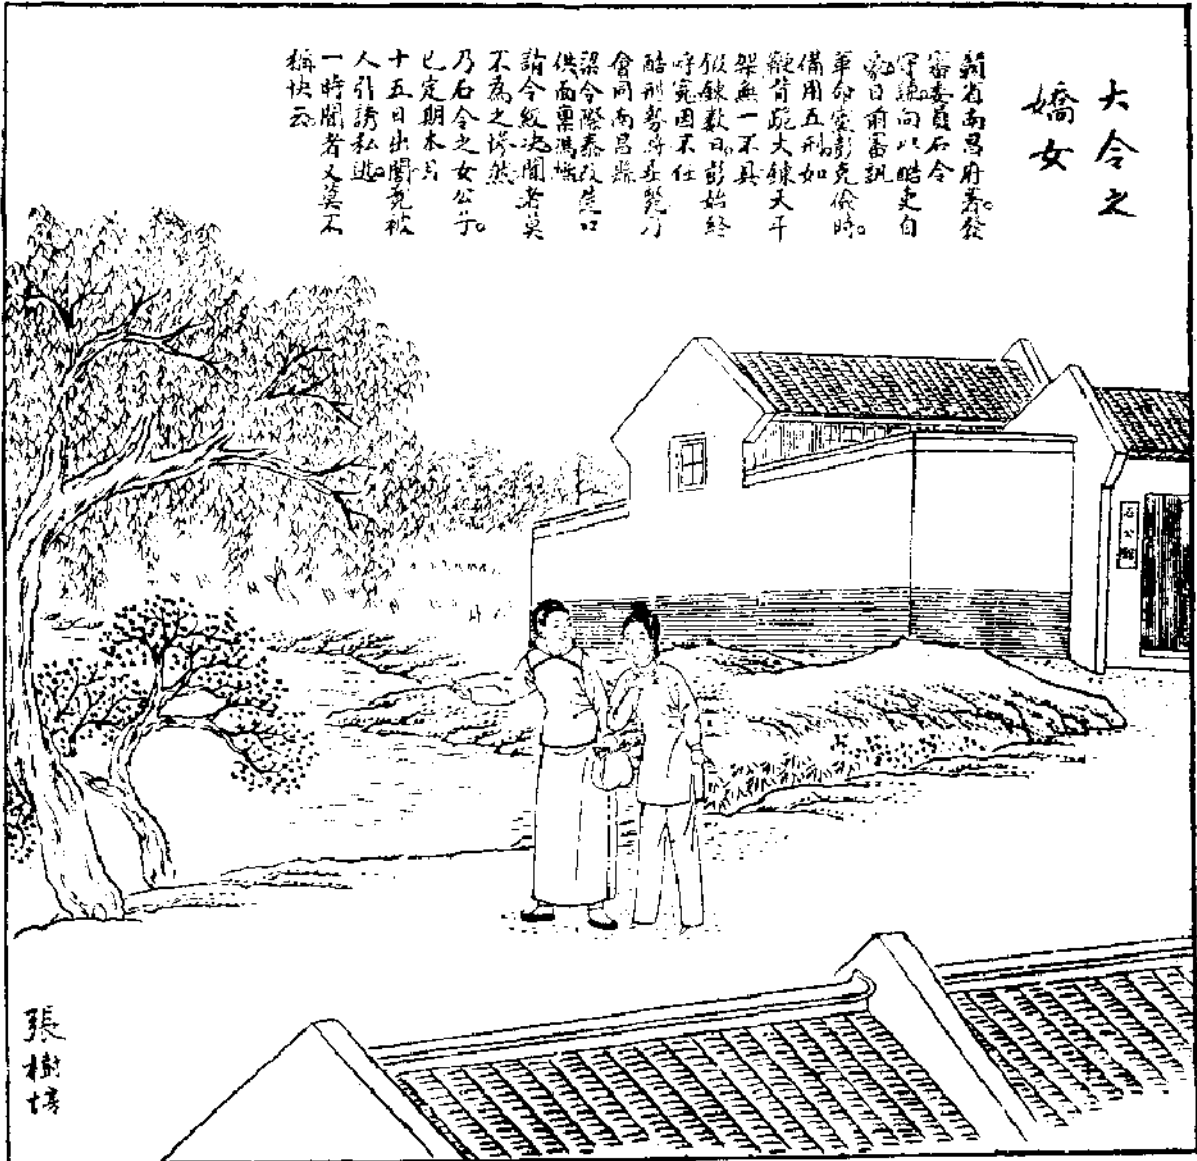 大令之
嬌女
贛省南昌府署發
審委員石令
守謙向以酷吏自
豪日前審訊
革命黨彭克儉時。
備用五刑如
鞭背跪火鍊天平
架無一不具
假鍊數日彭始終
呼冤因不任
酷刑勢將立斃乃
會同南昌縣
梁令
供面稟馮
請令絞決聞者莫
不為之愕然
乃石令之女公子。
已定期本月
十五日出閣竟被
人引誘私逃。
一時聞者又莫不
稱快云
石公館
張樹培